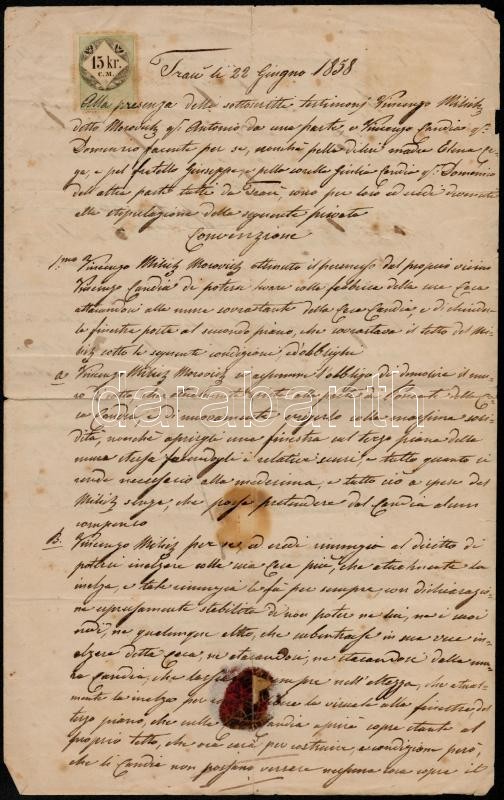 15 kr.
C.M.
Traù li 22 Giugno 1858
Alla presenza delli sottoscritti testimonj Vincenzo Milich
detto Morovich q.m Antonio da una parte, e Vincenzo Candia q.m
Domenico facente per se, nonchè pella di lui madre Elena
e pel fratello Giuseppe, e pella sorella Giulia Candia q.m Domenico
dell'altra parte tutti da Traù, sono per loro ed eredi divenuti
alla stipulazione della seguente privata
Convenzione
1.mo Vincenzo Milich Morovich ottenuto il permesso dal proprio vicino
Vincenzo Candia di potersi colla fabbrica della sua Casa
attaccandosi alle mure sovrastante della Casa Candia, e di chiudere
la finestra posta al secondo piano, che sovrastava il tetto del Mi-
lich sotto le seguenti condizioni, ed obblighi
a. Vincenzo Milich Morovich si assume l'obbligo di demolire il mu-
della Ca-
sa Candia, e di nuovamente erigerlo colla massima soli-
dità, nonchè aprirgli una finestra sul terzo piano della
mura stessa facendogli i relativi scuri, e tutto quanto si
rende necessario alla medesima, e tutto ciò a spese del
Milich senza, che possa pretendere dal Candia alcun
compenso
B. Vincenzo Milich per se, ed eredi rinunzia al diritto di
potersi inalzare colla sua Casa più, che attualmente la
inalza, e tale rinunzia la fà per sempre, con dichiarazio-
ne espressamente stabilita di non poter ne lui, ne i suoi
eredi, ne qualunque altro, che subentrasse in sua vece in-
alzare detta Casa, ne attaccandosi, ne staccandosi dalla mu-
ra Candia, che sempre nell'altezza, che attual-
mente la inalza per la visuale alla finestra, del
terzo piano, che sulla Candia aprirà soprastante al
proprio tetto, che ora sarà per costruire, a condizione però,
che li Candia non possano versare nessuna cosa sopra il
darabanth